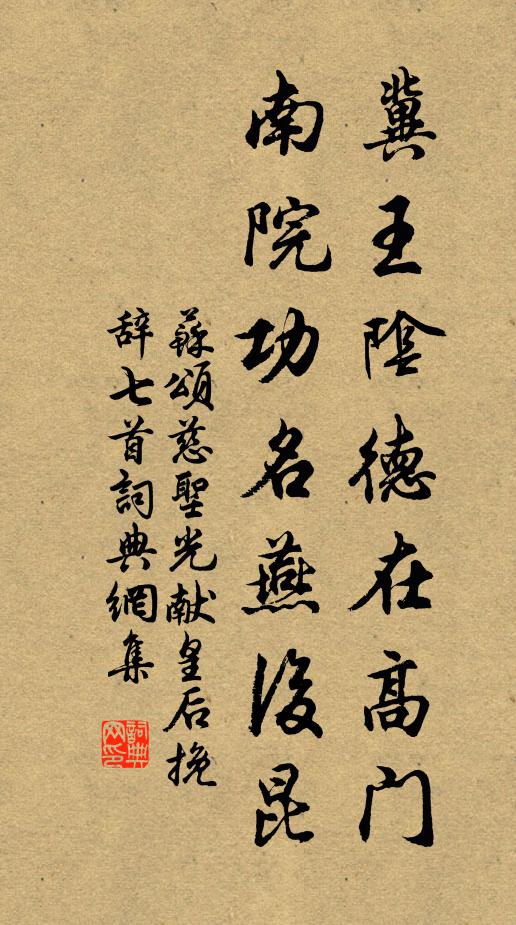 冀王陰德在高門
南院功名燕後昆
蘇頌慈聖光献皇后挽
辞七首詞典網集
詞典
网印